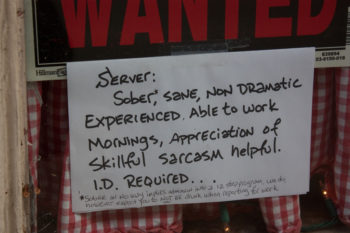 WANTED
Hillman
839894
SERVER:
SOBER,* SANE, NON DRAMATIC
EXPERIENCED. ABLE TO WORK
MORNINGS, APPRECIATION OF
SKILLFUL SARCASM HELPFUL.
I.D. REQUIRED...
*SOBER IN NO WAY IMPLIES ADMISSION INTO A 12 STEP PROGRAM. WE DO
HOWEVER EXPECT YOU TO NOT BE DRUNK WHEN REPORTING FOR WORK